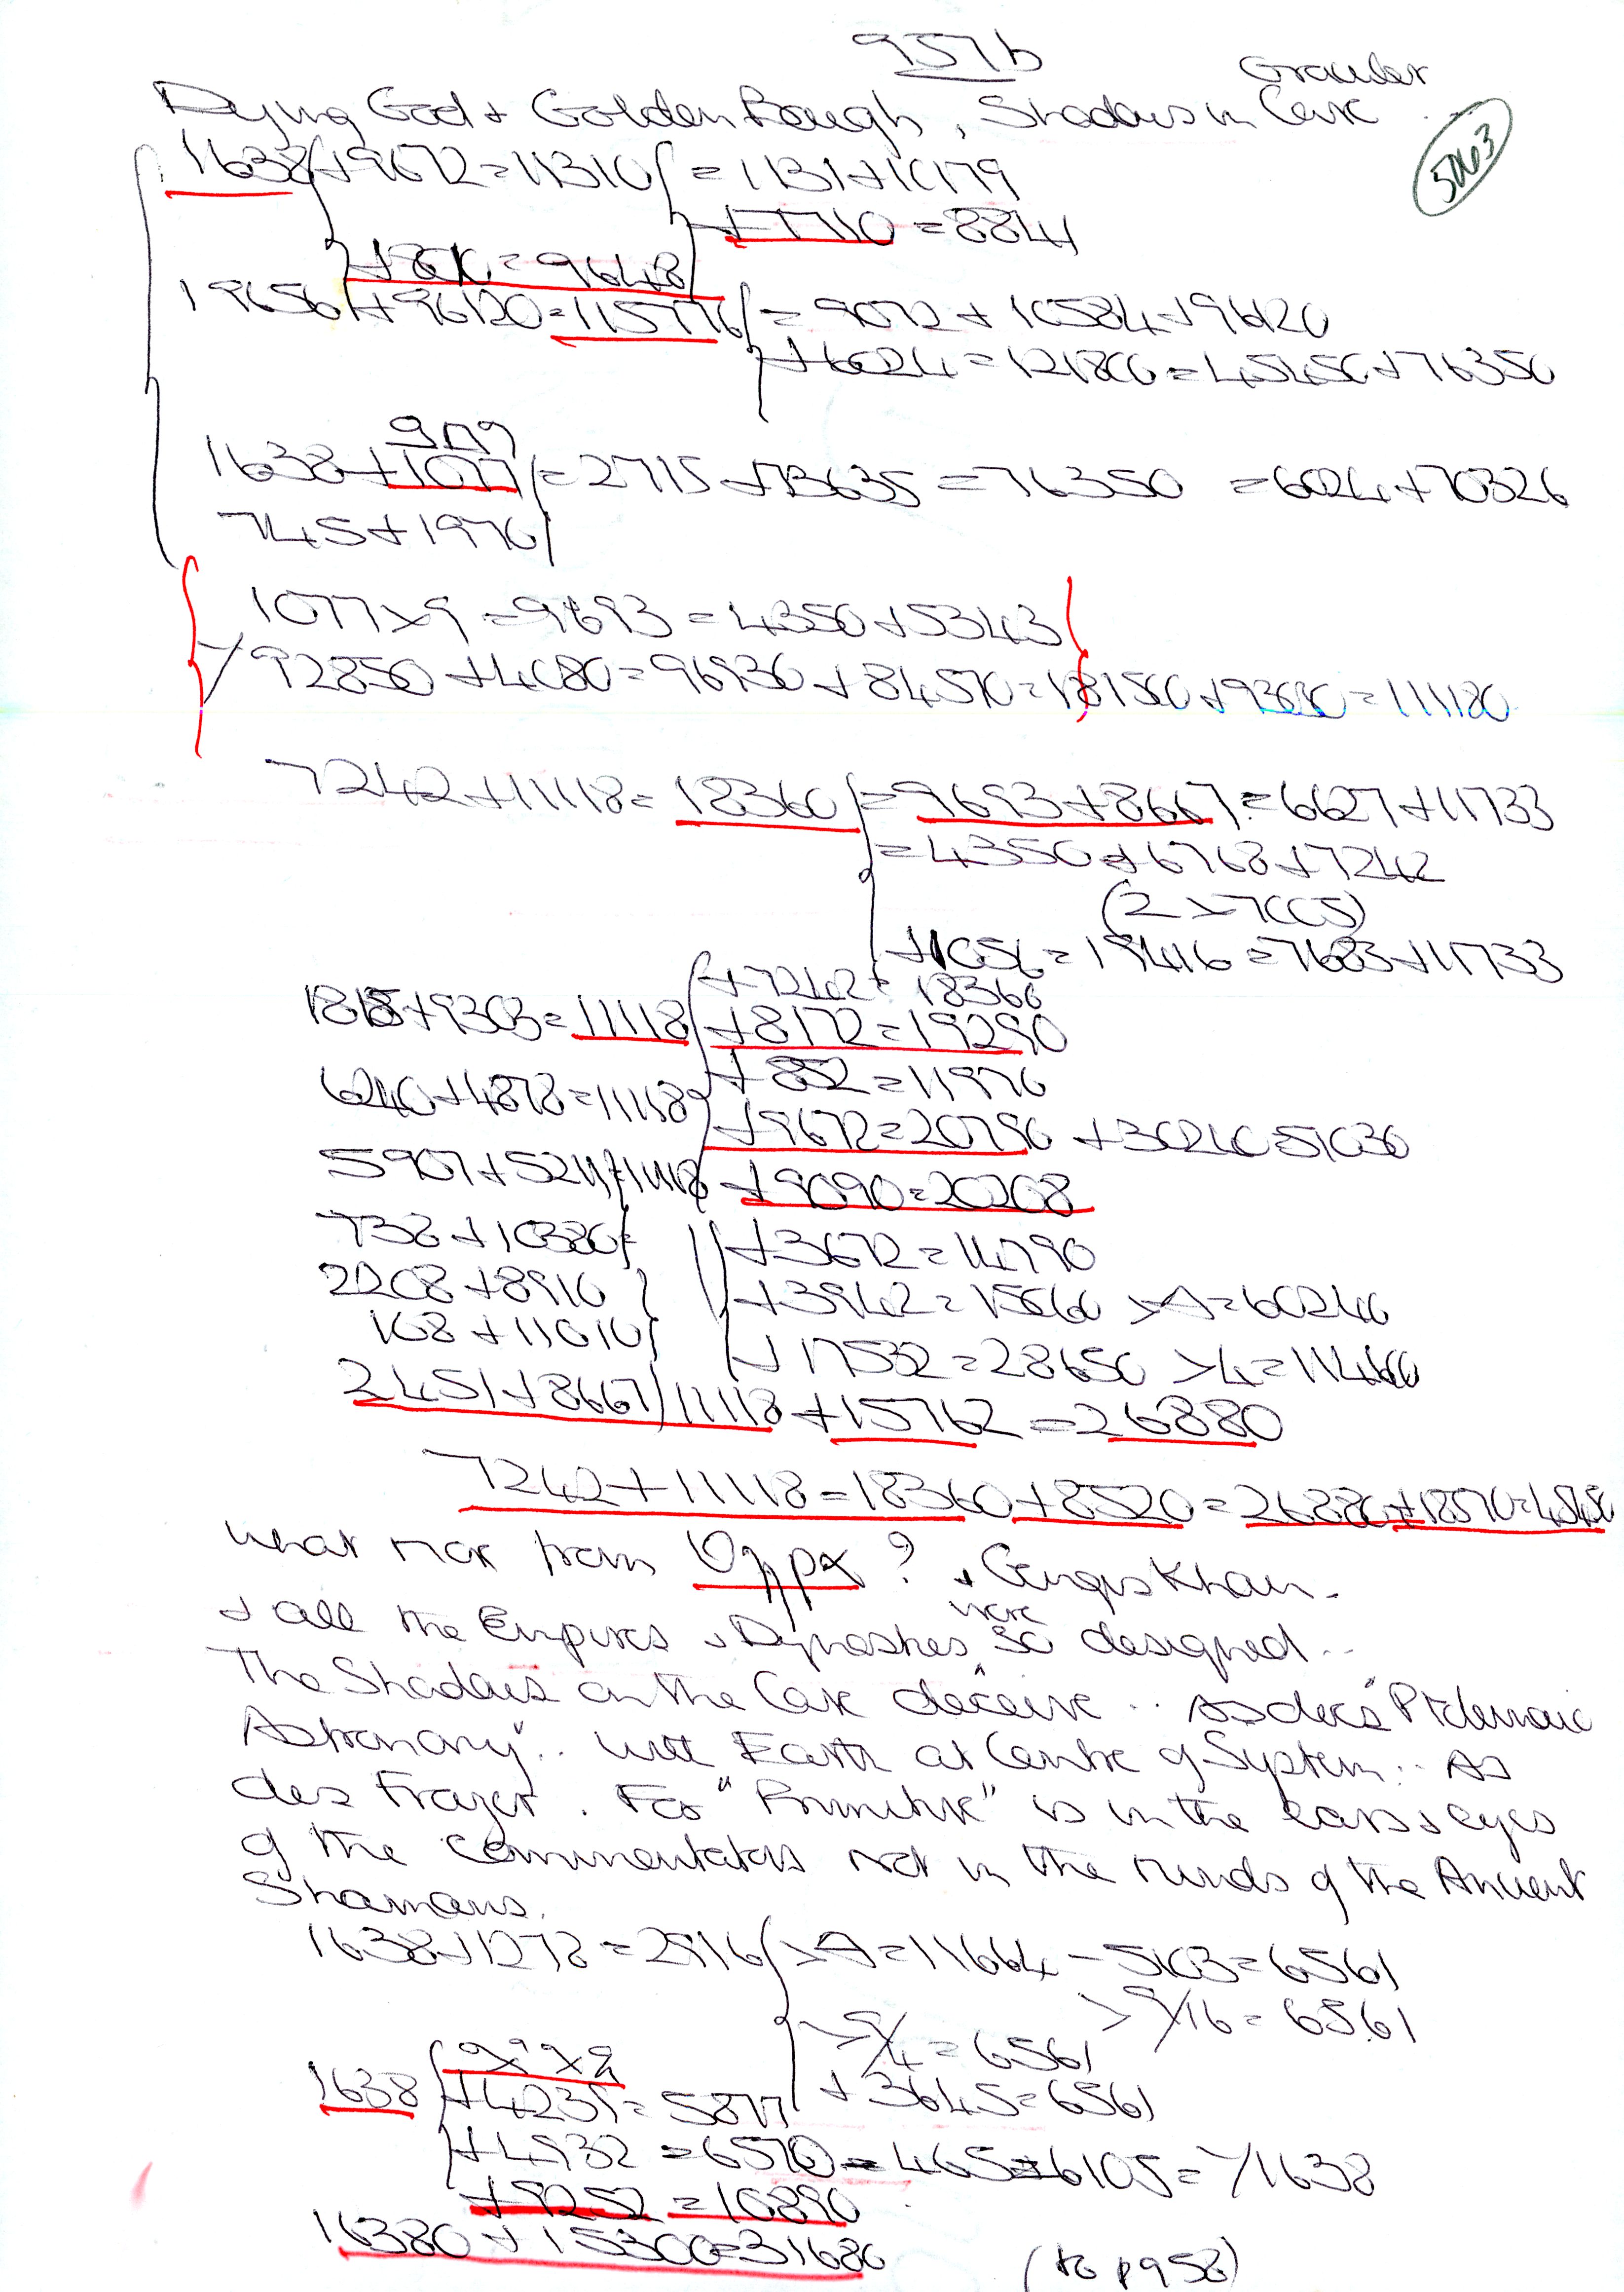 957b
Dying God + Golden Bough, Shadows in Cave
1638 + 9672 = 11310 = 1131 + 10179
+ 7710 = 8841
+ 8010 = 9648
19656 + 96120 = 115776 = 9072 + 10584 + 96120
+ 6024 = 121800 = 45450 + 76350
1638 + 1077 = 2715 + 73635 = 76350 = 6024 + 70326
745 + 1970
1077 x 9 = 9693 = 4350 + 5343
92850 + 4080 = 96930 + 84570 = 181500 + 93680 = 111180
7242 + 11118 = 18360 = 9693 + 8667 = 6627 + 11733
= 4350 + 6768 + 7242
+ 1056 = 19416 = 7683 + 11733
+ 7242 = 18360
1815 + 9303 = 11118 + 8172 = 19290
+ 852 = 11970
6240 + 4878 = 11118
+ 9672 = 20790 + 30240 = 51030
5907 + 5211 / 11118 + 9090 = 20208
738 + 10380 + 3672 = 14790
2208 + 8910 + 3942 = 15060 x 4 = 60240
108 + 11010
+ 17532 = 28650 x 4 = 114600
2451 + 8667 / 11118 + 15762 = 26880
7242 + 11118 = 18360 + 8520 = 26880 + 18570 = 45450
What not from ? + Gengis Khan -
+ all the Empires + Dynasties were so designed ..
The Shadows on the Cave deceive .. As does "Ptolemaic
Astronomy" .. with Earth at Centre of System .. As
does Frazer . For "Primitive" is in the ears + eyes
of the commentators not in the minds of the Ancient
Shamans.
1638 + 1278 = 2916 x 4 = 11664 - 5103 = 6561
x 9/16 = 6561
x 9/4 = 6561
1638 + 4239 = 5877 + 3645 = 6561
+ 4932 = 6570 = 465 + 6105 = /1638
+ 9252 = 10890
16380 + 15300 = 31680
(to p958)